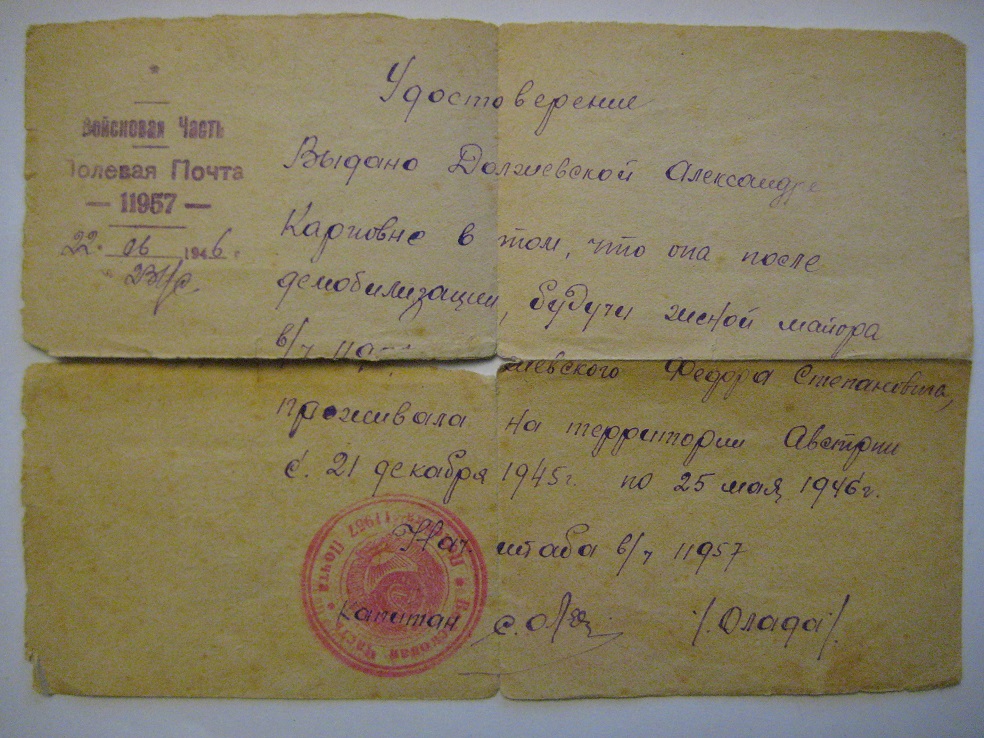 Войсковая Часть
Полевая Почта
— 11957 —
22. 06 1946 г.
Удостоверение
Выдано Долживской Александре
Карповне в том, что она после
демобилизации, будучи женой майора
в/ч Федора Степановича,
проживала на территории Австрии
с. 21 декабря 1945г. по 25 мая 1946г.
Нач. штаба в/ч 11957
Капитан /.Олада/.
Войсковая Часть Почта 11957